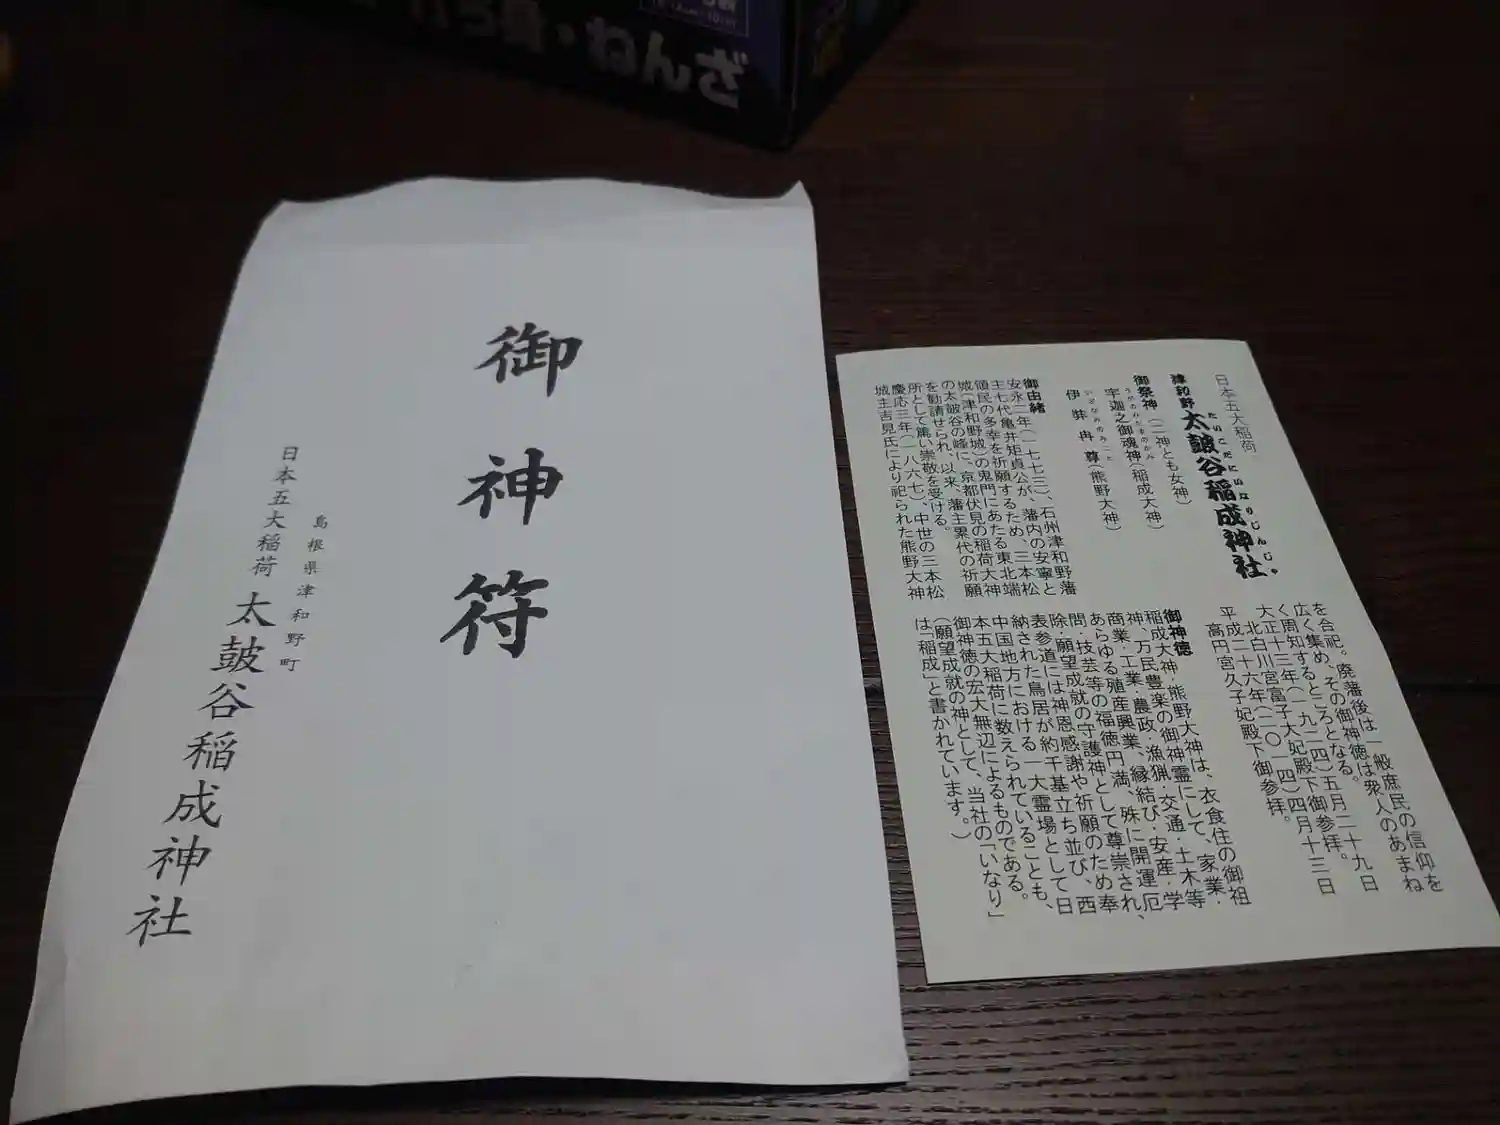 ねんざ
御神符
島根県津和野町
日本五大稲荷 太皷谷稲成神社
日本五大稲荷
津和野 太皷谷稲成神社
たいこだにいなりじんじゃ
御祭神(二神とも女神)
うがのみたまのかみ
宇迦之御魂神(稲成大神)
いざなみのみこと
伊弉冉尊(熊野大神)
御由緒
安永二年(一七七三)、石州津和野藩
主七代亀井矩貞公が、藩内の安寧と
領民の多幸を祈願するため、三本松
城(津和野城)の鬼門にあたる東北端
の太皷谷の峰に、京都伏見の稲荷大神
を勧請せられ、以来、藩主累代の祈願
所として篤い崇敬を受ける。
慶応三年(一八六七)、中世の三本松
城主吉見氏により祀られた熊野大神
を合祀。廃藩後は一般庶民の信仰を
広く集め、その御神徳は衆人のあまね
く周知するところとなる。
大正十三年(一九二四)五月二十九日
北白川宮富子大妃殿下御参拝。
平成二十六年(二〇一四)四月十三日
高円宮久子妃殿下御参拝。
御神徳
稲成大神・熊野大神は、衣食住の御祖
神、万民豊楽の御神霊にして、家業・
商業・工業・農政、漁猟・交通・土木等
あらゆる殖産興業、縁結び・安産・学
問・技芸等の福徳円満、殊に開運厄
除・願望成就の守護神として尊崇され、
表参道には神恩感謝や祈願のため奉
納された鳥居が約千基立ち並び、西
中国地方における一大霊場として日
本五大稲荷に数えられていることも、
御神徳の宏大無辺によるものである。
(願望成就の神として、当社の「いなり」
は「稲成」と書かれています。)